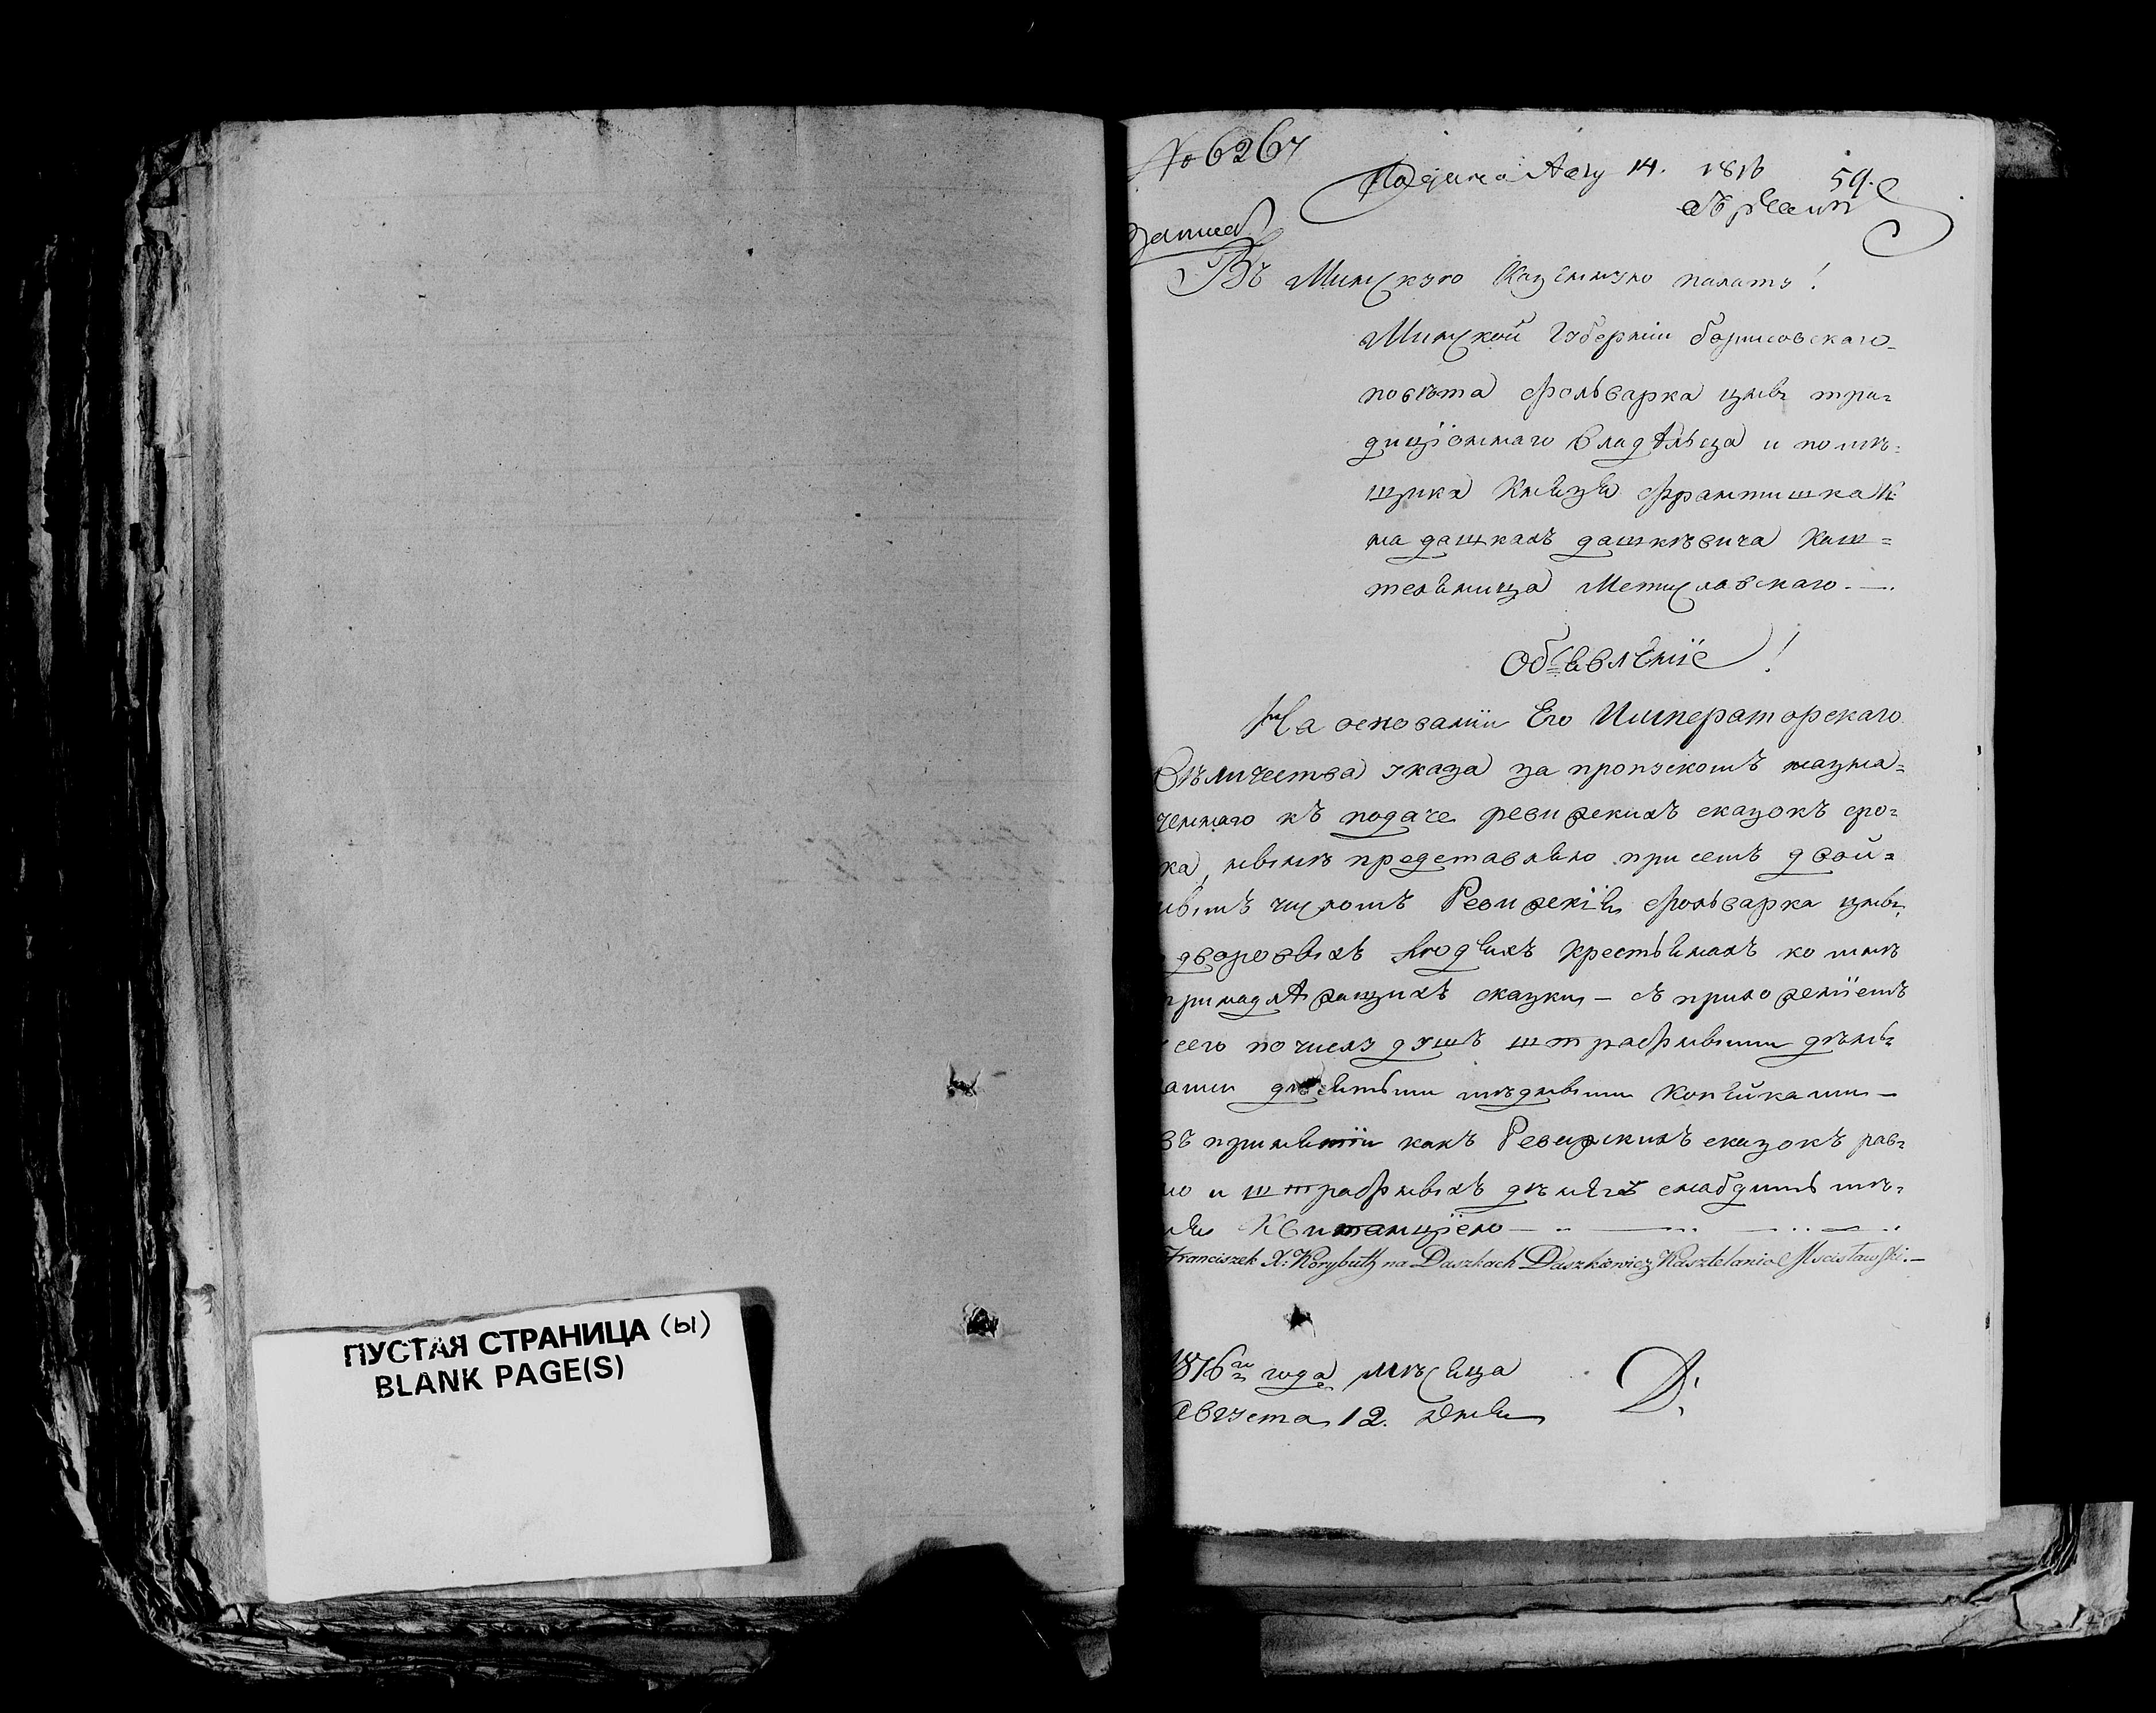 ПУСТАЯ СТРАНИЦА (ы)
BLANK PAGE(S)
№ 6267
Подана Авгу 14. 1816
59.
Въ Минскую Казенную палату!
Минской Губерніи борисовскаго
повѣта фольварка цны тра=
диціоннаго владѣльца и помѣ=
щика Князя Франтишка К:
на дашкахъ дашкѣвича Каш=
теляница Мстиславскаго.—.
Объявленіе!
На основаніи Его Императорскаго
Вѣличества указа за пропускомъ назна=
ченнаго къ подаче ревижскихъ сказокъ сро=
ка, нынѣ представляю при семъ двой=
нымъ числомъ Ревижскія фольварка цны,
дворовыхъ людяхъ крестьянахъ ко мнѣ
принадлѣжащихъ сказки — съ приложеніемъ
сего по числу душъ штрафными дѣнь=
ами мѣдными Копѣйками —
въ принятіи какъ Ревижскихъ сказокъ рав=
но и штрафныхъ дѣнѣгъ снабдить мѣ=
ня Квитанціею
Franciszek X: Korybuth na Daszkach Daszkiewicz Kasztelanic Mscisławski.—
1816го года мѣсяца
Августа 12. Дня
D: